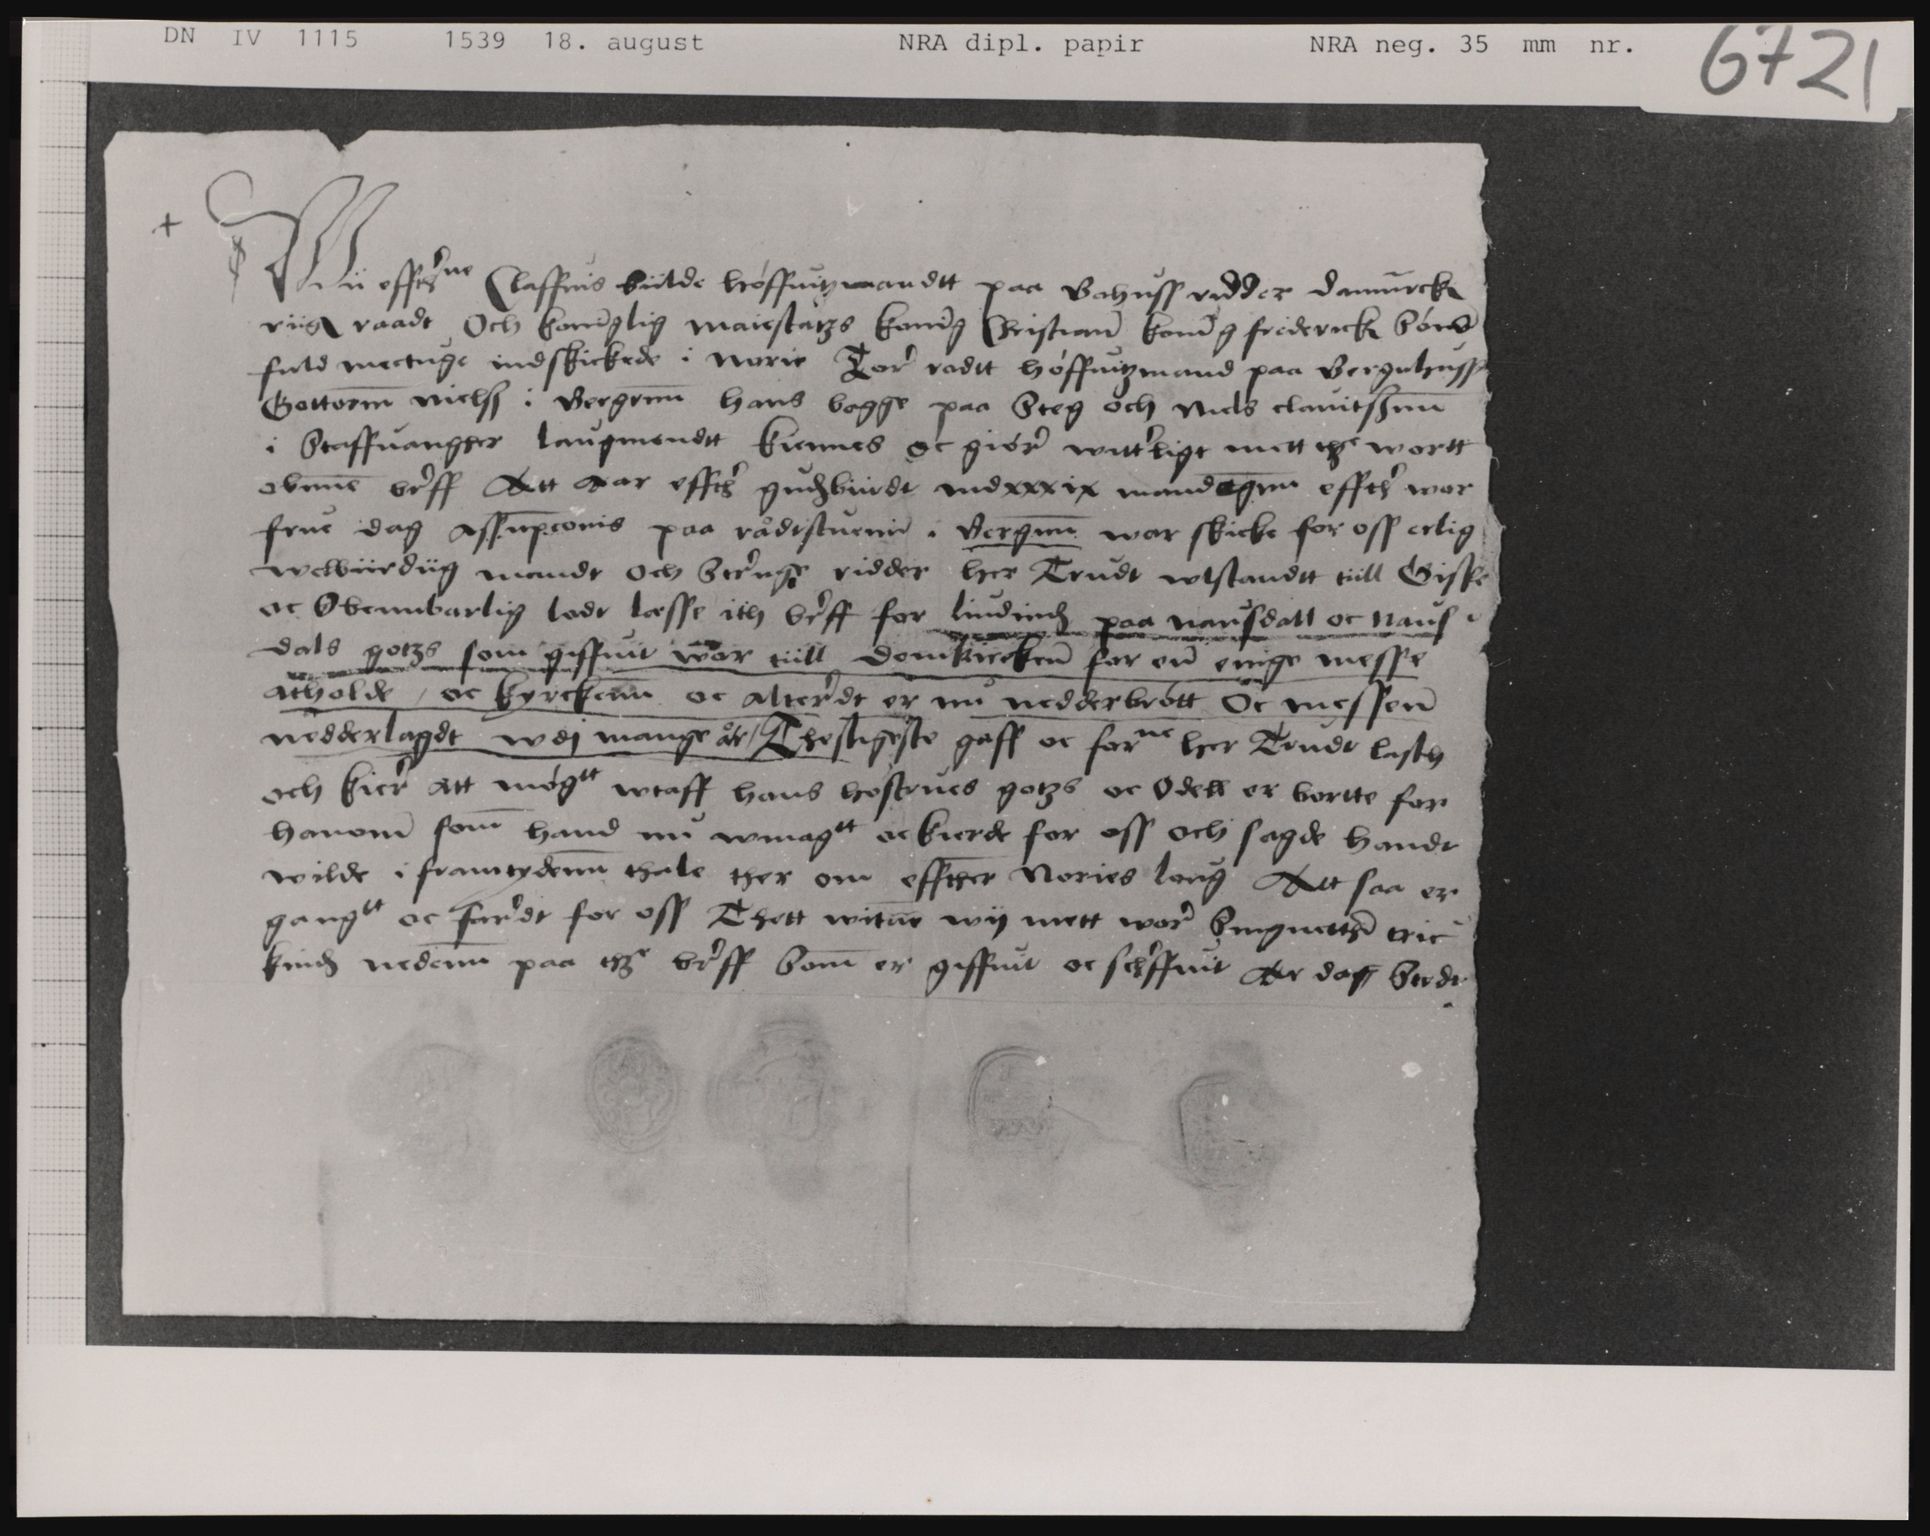 DN IV 1115 1539 18. august NRA dipl. papir NRA neg. 35 mm nr. 6721
+
Wii effthrne Claffuis biilde höffuitzmandtt paa Bahuss ridder danmrcks
riigs raadt Och koninglig maiestatzs koning Christiann koning frederick Sönds
fuld mectuge indskickede i norie Tor rodtt höffuitzmand paa Bergnhuss
Gottorm nielss i Bergenn hans bagge paa Steg och niels clauitssenn
i Staffuangher laugmendtt kiennes oc giör witterligt mett thze wortt
obnne breff Att Aar effthr gudzbiirdt mdxxxix mandagenn effthr wor
frue dag assupconis paa rådtstuenn i Bergenn war skicke for oss erlig
welbiirdiig mandt Och Strenge ridder her Trudt wlstandtt tiill Giske
oc Obennbarlig lodt læsse ith breff for liudindz paa nausdall oc naus
dals gotzs som giffuit war tiill domkircken for en enige messe
atholde / oc kyrckenn oc alterdt er nu nedderbrött Oc messen
nedderlagdt wdj mange år / Thesligeste gaff oc forne her Trudt lasth
och kier att mögtt wtaff hans hostrues gotzs oc Odell er bortte for
hanom som hand nu wmagtt oc kierde for oss och sagde handt
wilde i framtydenn thale ther om effther Nories laug Att saa er
gangtt oc fardt for oss Thett witne wij mett wor Singnetther tric
kindz nedenn paa thze breff Som er giffuit oc schreffuit Aar dag Stedt